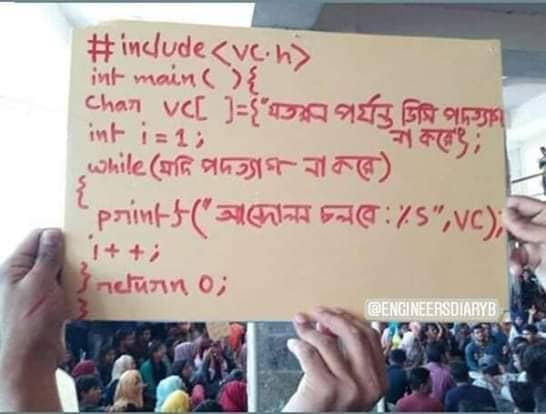 #include<vc.h>
int main( ){
char vc[ ]={"যতক্ষন পর্যন্ত ভিসি পদত্যাগ
না করে};
int i=1;
while(যদি পদত্যাগ না করে)
{
printf("আন্দোলন চলবে:%s",vc);
i++;
} return 0;
}
@ENGINEERSDIARYB